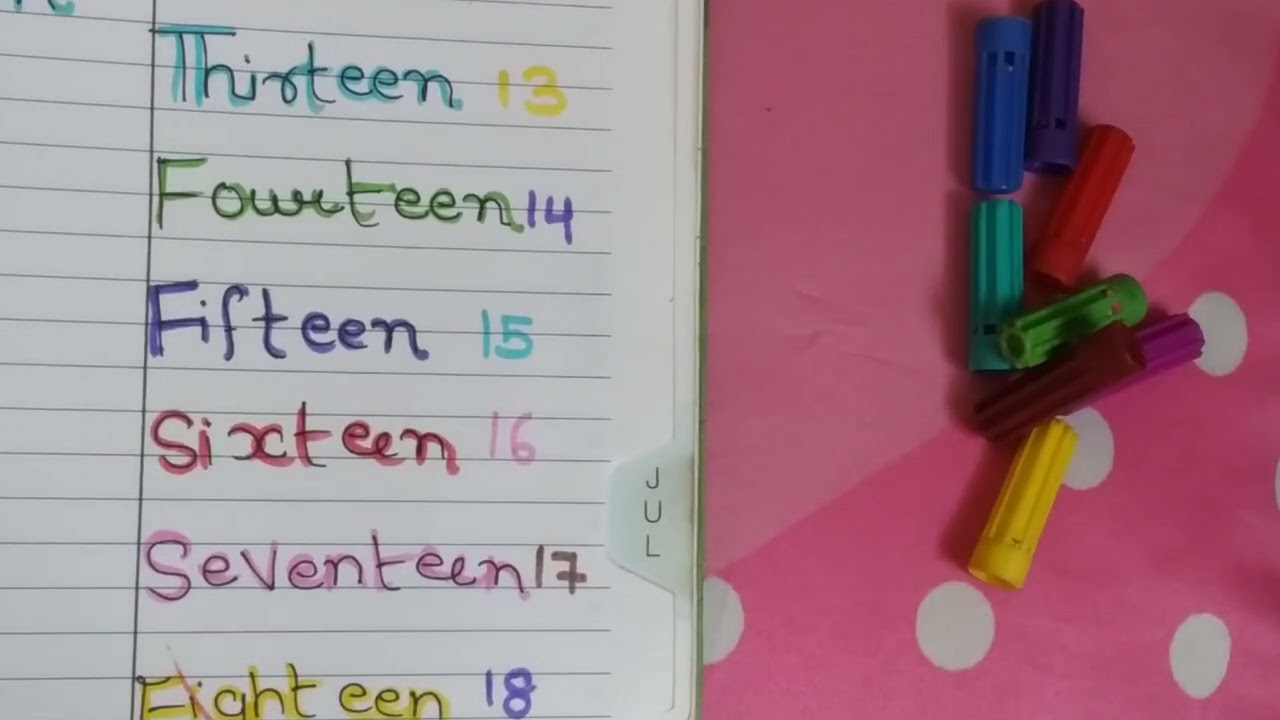 Thirteen 13
Fourteen 14
Fifteen 15
Sixteen 16
Seventeen 17
Eighteen 18
JUL